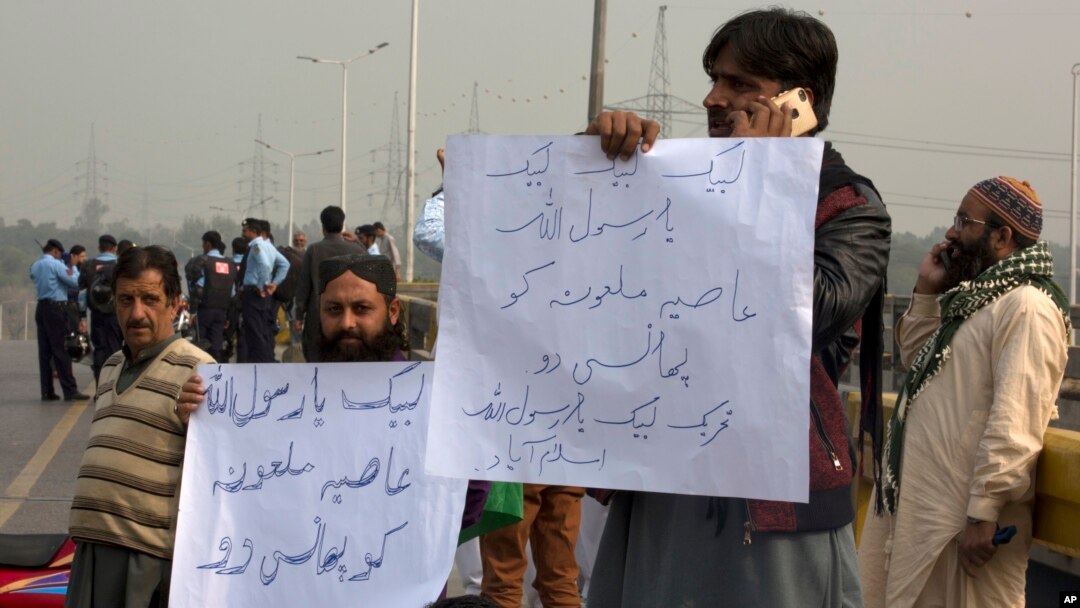 لبیک لبیک لبیک
یا رسول اللہ
عاصیہ ملعونہ کو
پھانسی دو
تحریک لبیک یا رسول اللہ
اسلام آباد
لبیک یا رسول اللہ
عاصیہ ملعونہ
کو پھانسی دو
AP